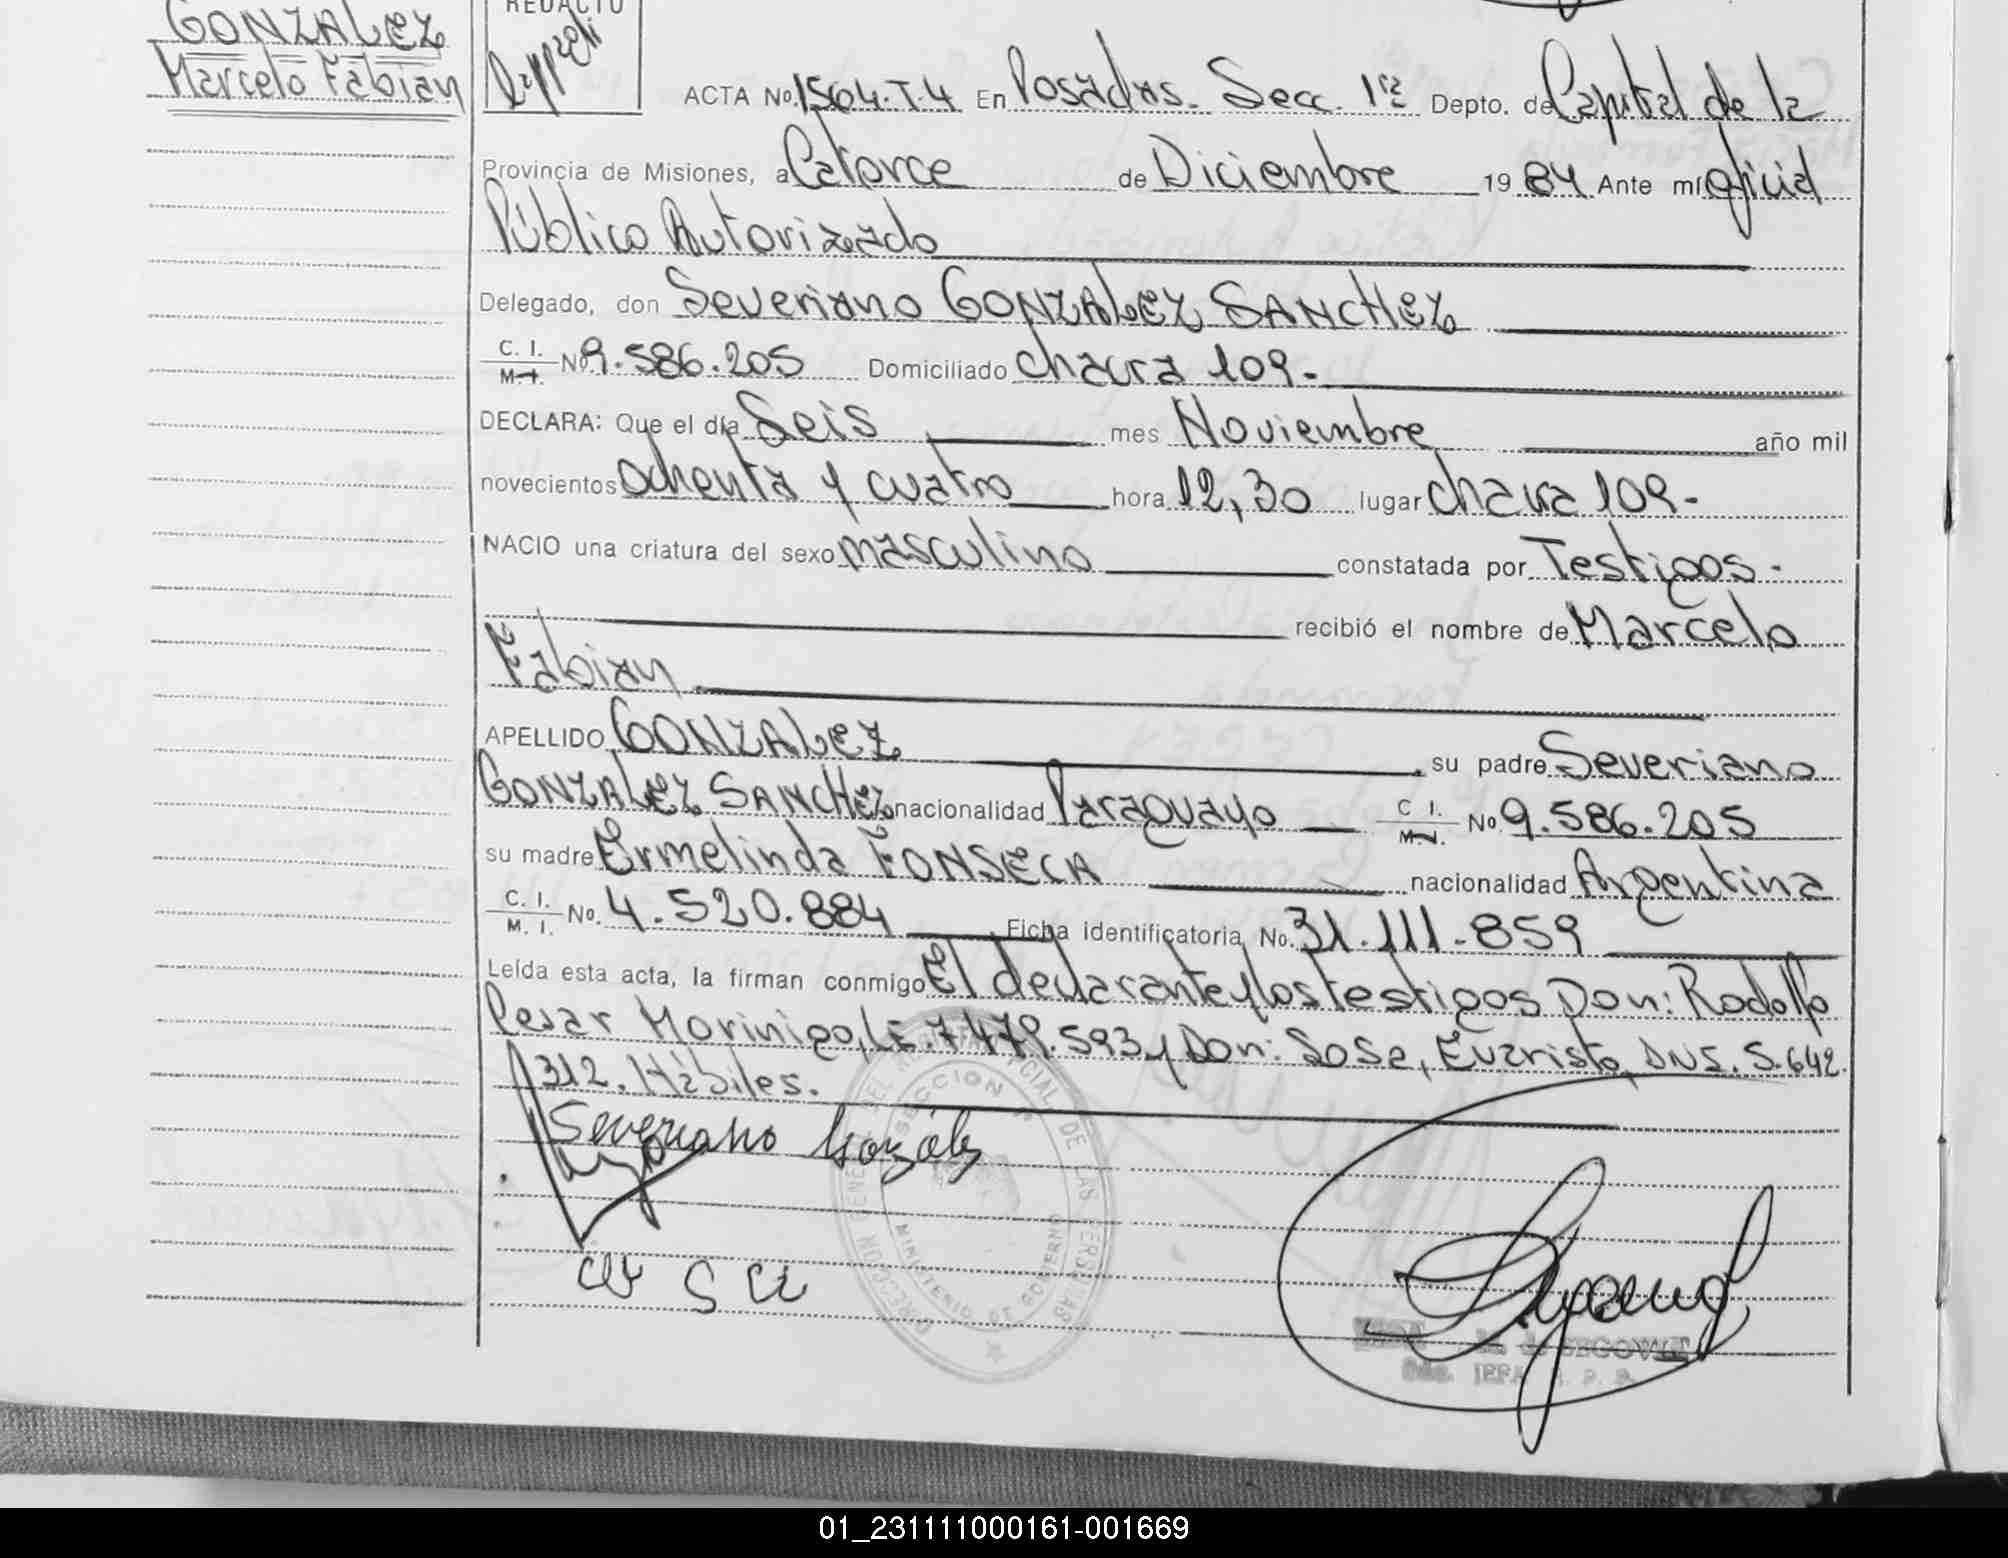 GONZALEZ
Marcelo Fabian
REDACTO
ACTA No. 1504.T.4 En Posadas. Secc. 1ra Depto. de Capital de la
Provincia de Misiones, a Catorce de Diciembre 1984 Ante mi Oficial
Público Autorizado
Delegado, don Severiano GONZALEZ SANCHEZ
C. I. M. I. Nº 9.586.205 Domiciliado chacra 109.-
DECLARA: Que el día Seis mes Noviembre año mil
novecientos ochenta y cuatro hora 12,30 lugar chacra 109-
NACIO una criatura del sexo masculino constatada por Testigos.
recibió el nombre de Marcelo
Fabian
APELLIDO GONZALEZ, su padre Severiano
GONZALEZ SANCHEZ nacionalidad Paraguayo C I. M. I. No. 9.586.205
su madre Ermelinda FONSECA nacionalidad Argentina
C. I. M. I. No. 4.520.884 Ficha identificatoria No. 31.111.859
Leída esta acta, la firman conmigo El declarante y los testigos Don: Rodolfo
Cesar Morinigo, LE. 7479.593 y Don: Jose, Evaristo, DNI. 5.642.
312. Hábiles.
Severiano Gonzalez
SECCION 1ª
MINISTERIO DE GOBIERNO
de SEGOVIA
01_231111000161-001669